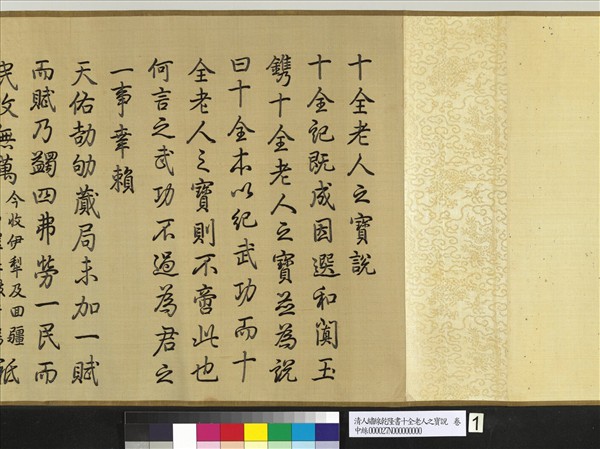 十全老人之寶說
十全記既成因選和闐玉
鐫十全老人之寶並為說
曰十全本以紀武功而十
全老人之寶則不啻此也
何言之武功不過為君之
一事幸賴
天佑劼劬蕆局未加一賦
而賦乃蠲四弗勞一民而
民收無萬 今收伊犁及回疆 祗
清人繡線乾隆書十全老人之寶說 卷
中絲000027N000000000
1